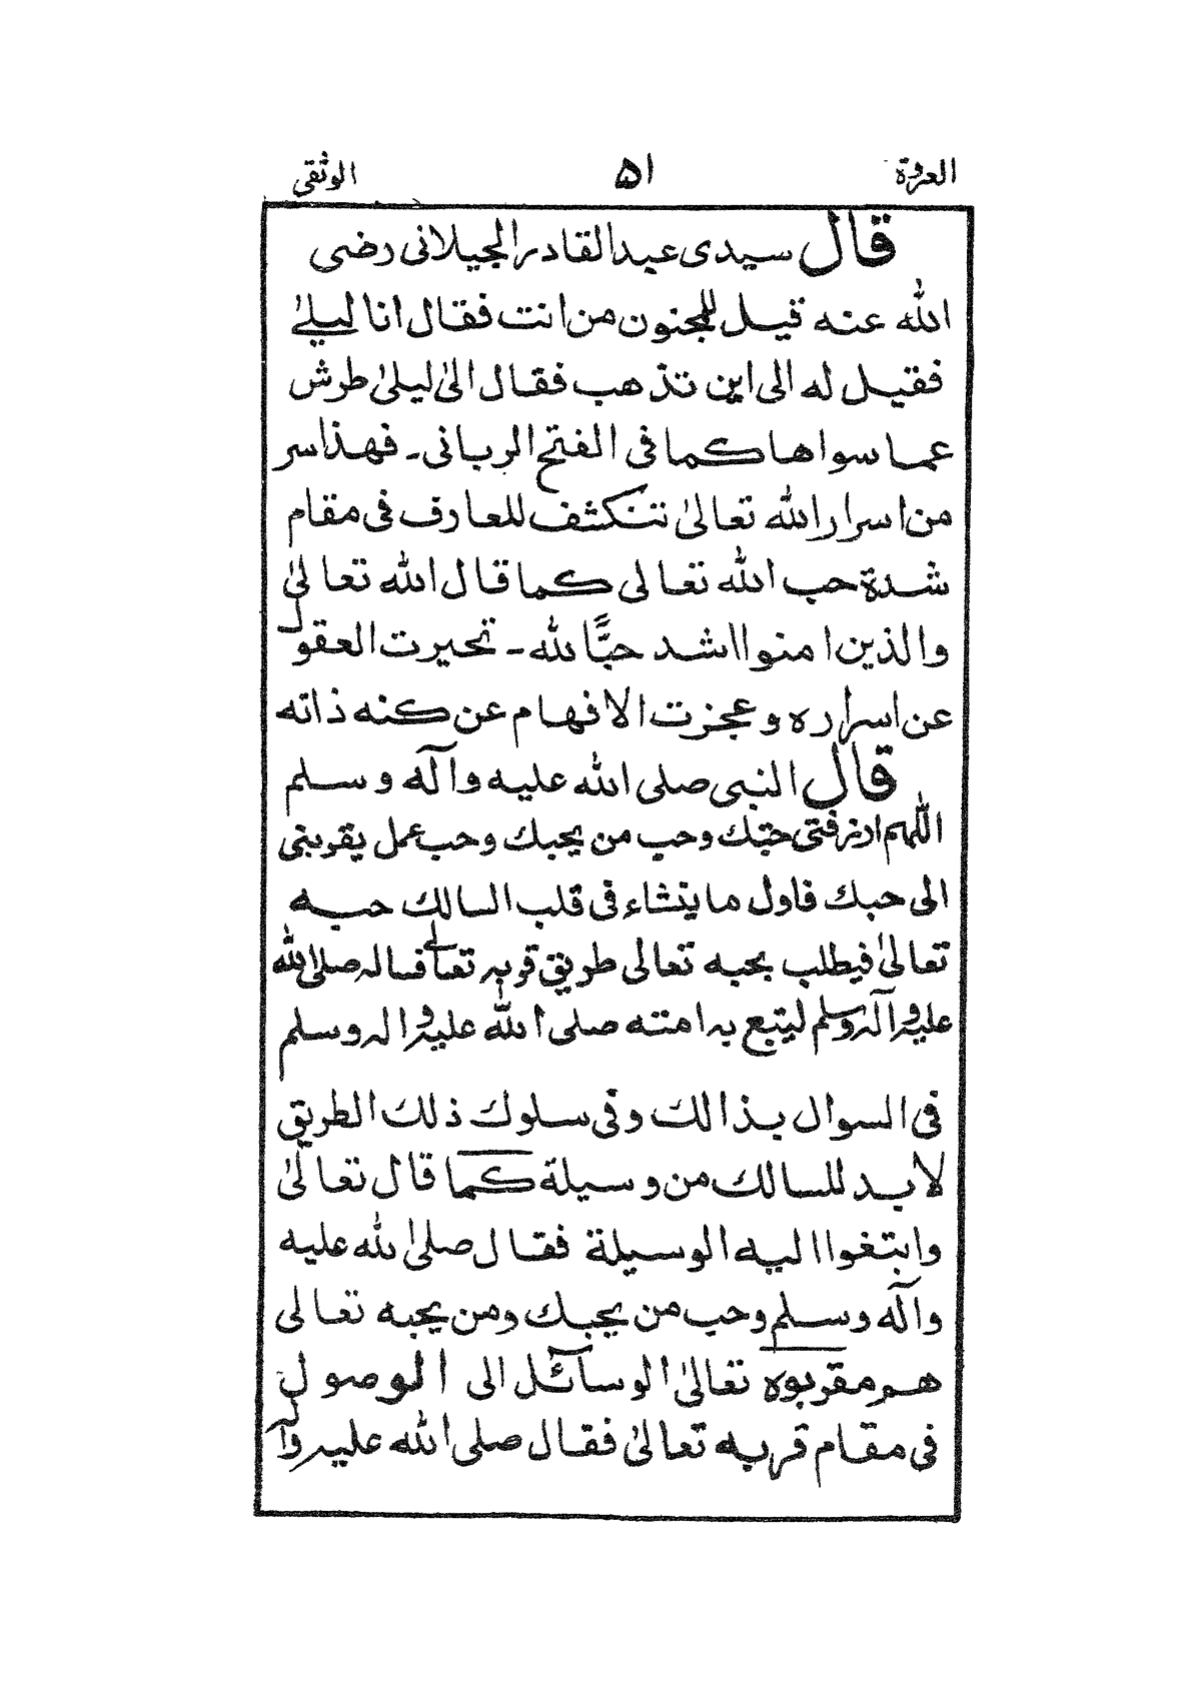 العروة ٥١ الوثقى
قال سيدى عبدالقادرالجيلانى رضى
الله عنه قيل للمجنون من انت فقال انا ليلےٰ
فقيل له الى اين تذهب فقال الىٰ ليلىٰ طرش
عما سواها كما فى الفتح الربانى۔ فهذا سر
من اسرار الله تعالىٰ تنكشف للعارف فى مقام
شدة حب الله تعالى كما قال الله تعالىٰ
والذين امنوا اشد حبًّا لله۔ تحيرت العقول
عن اسراره وعجزت الافهام عن كنه ذاته
قال النبى صلى الله عليه وآله وسلم
اللهم ارزقنى حبّك وحب من يحبك وحب عمل يقربنى
الى حبك فاول ما ينشاء فى قلب السالك حبه
تعالىٰ فيطلب بحبه تعالى طريق قربه تعالے فساله صلى الله
عليه وآله وسلم ليتبع به امته صلى الله عليه واله وسلم
فى السوال بذالك وفى سلوك ذلك الطريق
لابد للسالك من وسيلة كما قال تعالىٰ
وابتغوا اليه الوسيلة فقال صلىٰ الله عليه
وآله وسلم وحب من يحبك ومن يحبه تعالى
هم مقربوه تعالىٰ الوسآئل الى الوصول
فى مقام قربه تعالىٰ فقال صلى الله عليه وآله